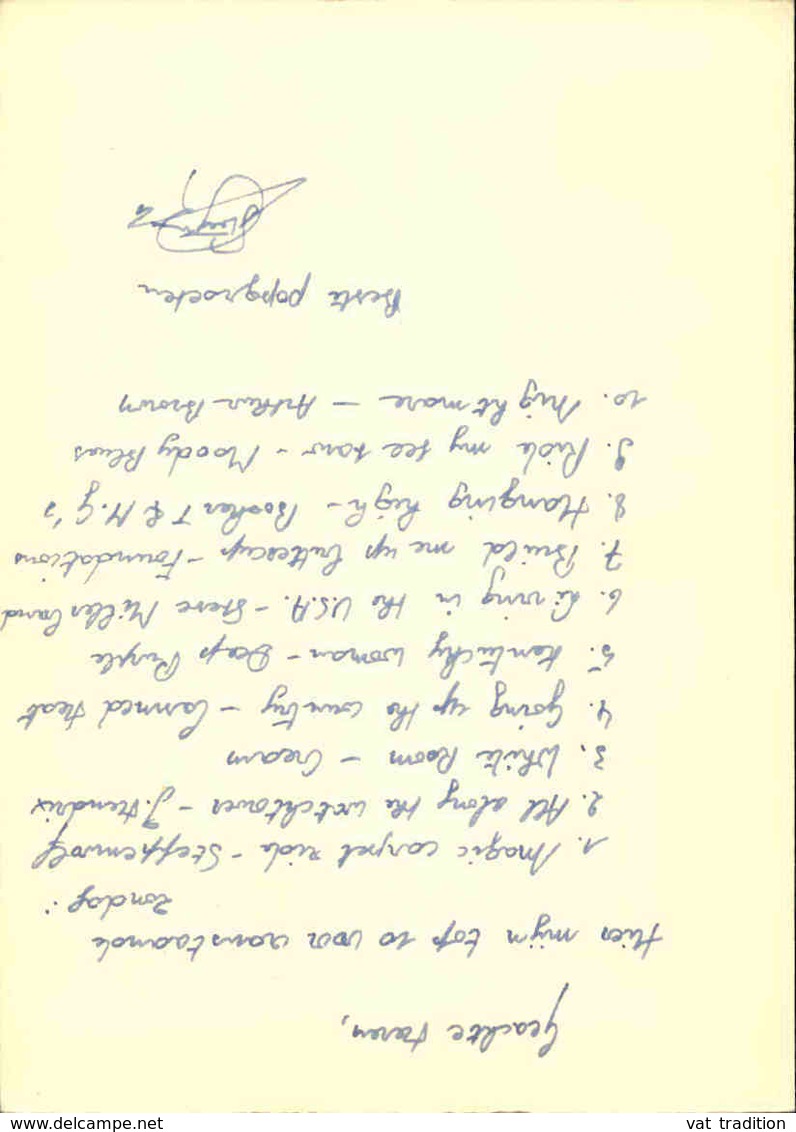 Geachte Heren,
Hier mijn top 10 voor aanstaande
zondag:
1. Magic carpet ride - Steppenwolf
2. All along the watchtower - J. Hendrix
3. White Room - Cream
4. Going up the country - Canned Heat
5. Kentucky woman - Deep Purple
6. Living in the U.S.A. - Steve Miller band
7. Build me up buttercup - Foundations
8. Hanging high - Booker T & M.G's
9. Ride my see saw - Moody Blues
10. Nightmare - Arthur Brown
Beste popgroeten
www.delcampe.net
vat tradition